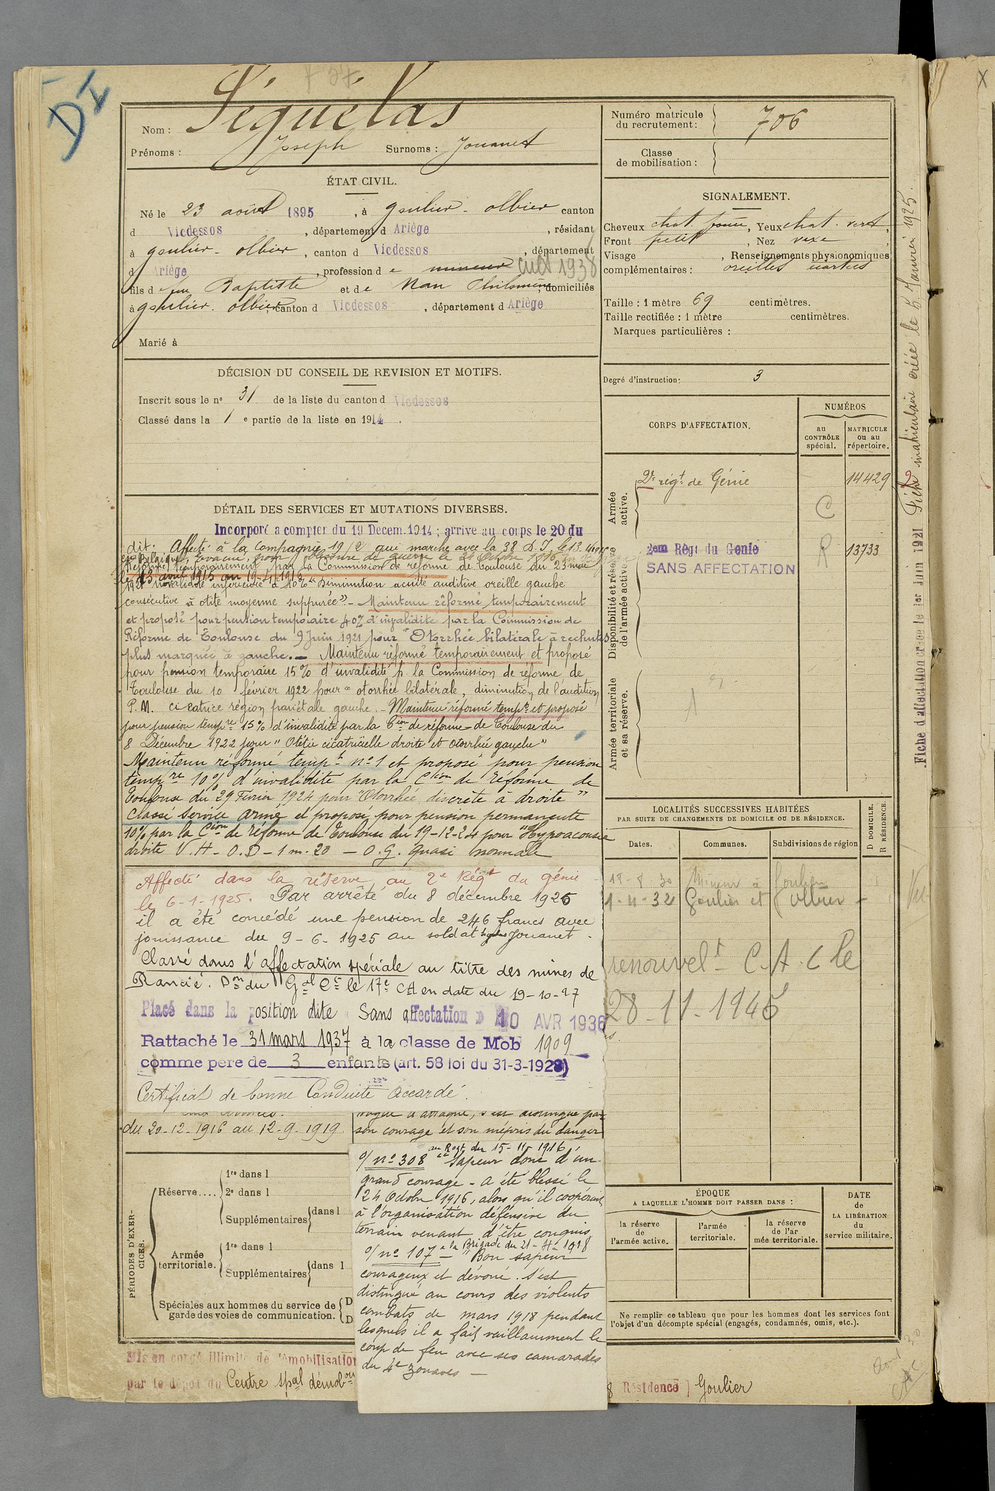 DI
Nom : Séguélas
Prénoms : Joseph Surnoms : Jouanet
ÉTAT CIVIL.
Né le 23 août 1895, à goulier-olbier canton
d Vicdessos, département d Ariège, résidant
à goulier-olbier, canton d Vicdessos, département
d Ariège, profession de mineur cult 1938
fils de feu Baptiste et de Nan Philomène, domiciliés
à goulier-olbier, canton d Vicdessos, département d Ariège
Marié à
DÉCISION DU CONSEIL DE REVISION ET MOTIFS.
Inscrit sous le n° 31 de la liste du canton d Vicdessos
Classé dans la 1 e partie de la liste en 1914.
DÉTAIL DES SERVICES ET MUTATIONS DIVERSES.
Incorporé à compter du 19 Décem. 1914 ; arrivé au corps le 20 du
dit. Affecté à la Compagnie 19/2 qui marche avec la 38 D.I.
Réformé temporairement par la Commission de réforme de Toulouse du 23 mai
invalidité inférieure à 10% diminution acuité auditive oreille gauche
consécutive à otite moyenne suppurée". - Maintenu réformé temporairement
et proposé pour pension temporaire 40% d'invalidité par la Commission de
Réforme de Toulouse du 9 Juin 1921 pour "Otorrhée bilatérale à rechutes
plus marquée à gauche. - Maintenu réformé temporairement et proposé
pour pension temporaire 15% d'invalidité p. la Commission de réforme de
Toulouse du 10 février 1922 pour "otorrhée bilatérale, diminution de l'audition
P.M. cicatrice région pariétale gauche. Maintenu réformé tempre et proposé
pour pension tempre 15% d'invalidité par la Cion de réforme de Toulouse du
8 Décembre 1922 pour "Otite cicatricielle droite et otorrhée gauche"
Maintenu réformé tempre n°1 et proposé pour pension
tempre 10% d'invalidité par la Ction de Réforme de
Toulouse du 29 Février 1924 pour "Otorrhée discrète à droite"
Classé service armé et proposé pour pension permanente
10% par la Cion de réforme de Toulouse du 19-12-24 pour "Hypoacousie
droite V.H - O.D - 1m.20 - O.G. quasi normale
Affecté dans la réserve au 2e Régt du génie
le 6-1-1925. Par arrêté du 8 décembre 1925
il a été concédé une pension de 246 francs avec
jouissance du 9-6-1925 au soldat Jouanet.
Classé dans l'affectation spéciale au titre des mines de
Rancié. Don du Gal Ct le 17e CA en date du 19-10-27
Placé dans la position dite Sans affectation 10 AVR 1936
Rattaché le 31 mars 1937 à la classe de Mob 1909
comme père de 3 enfants (art. 58 loi du 31-3-1928)
Certificat de bonne Conduite accordé.
du 20-12-1916 au 12-9-1919
son courage et son mépris du danger
o/ n° 308 au Regt du 15-11-1916 Sapeur doué d'un
grand courage - a été blessé le
24 Octobre 1916, alors qu'il coopérait
à l'organisation défensive du
terrain venant d'être conquis
o/ n° 107 à la Brigade du 21-4-1918 "Bon sapeur
courageux et dévoué. S'est
distingué au cours des violents
combats de mars 1918 pendant
lesquels il a fait vaillamment le
coup de feu avec ses camarades
du 4e Zouaves -
PÉRIODES D'EXERCICES.
Réserve....
1re dans l
2e dans l
Supplémentaires dans l
Armée territoriale.
1re dans l
Supplémentaires dans l
Spéciales aux hommes du service de
garde des voies de communication.
Mis en congé illimité de démobilisation
par le dépôt du Centre spal démob
Numéro matricule du recrutement : 706
Classe de mobilisation :
SIGNALEMENT.
Cheveux chat foncé, Yeux chat. vert
Front petit, Nez vexe
Visage , Renseignements physionomiques
complémentaires : oreilles écartées
Taille : 1 mètre 69 centimètres.
Taille rectifiée : 1 mètre centimètres.
Marques particulières :
Degré d'instruction : 3
CORPS D'AFFECTATION.
NUMÉROS
au CONTRÔLE spécial.
MATRICULE ou au répertoire.
Armée active.
2e régt de Génie 14429
C
Disponibilité et réserve de l'armée active.
2em Régt du Genie R 13733
SANS AFFECTATION
Armée territoriale et sa réserve.
LOCALITÉS SUCCESSIVES HABITÉES
PAR SUITE DE CHANGEMENTS DE DOMICILE OU DE RÉSIDENCE.
Dates. Communes. Subdivisions de région
D DOMICILE. R RÉSIDENCE.
18-8-30 Mineur à Goulier
1-4-32 Goulier et Olbier
renouvelt C.A. C le
28-11-1945
ÉPOQUE
A LAQUELLE L'HOMME DOIT PASSER DANS :
la réserve de l'armée active.
l'armée territoriale.
la réserve de l'armée territoriale.
DATE de LA LIBÉRATION du service militaire.
Ne remplir ce tableau que pour les hommes dont les services font
l'objet d'un décompte spécial (engagés, condamnés, omis, etc.).
Résidence ) Goulier
Fiche d'affectation créée le 1er Juin 1921
Fiche matriculaire créée le 5 Janvier 1925.